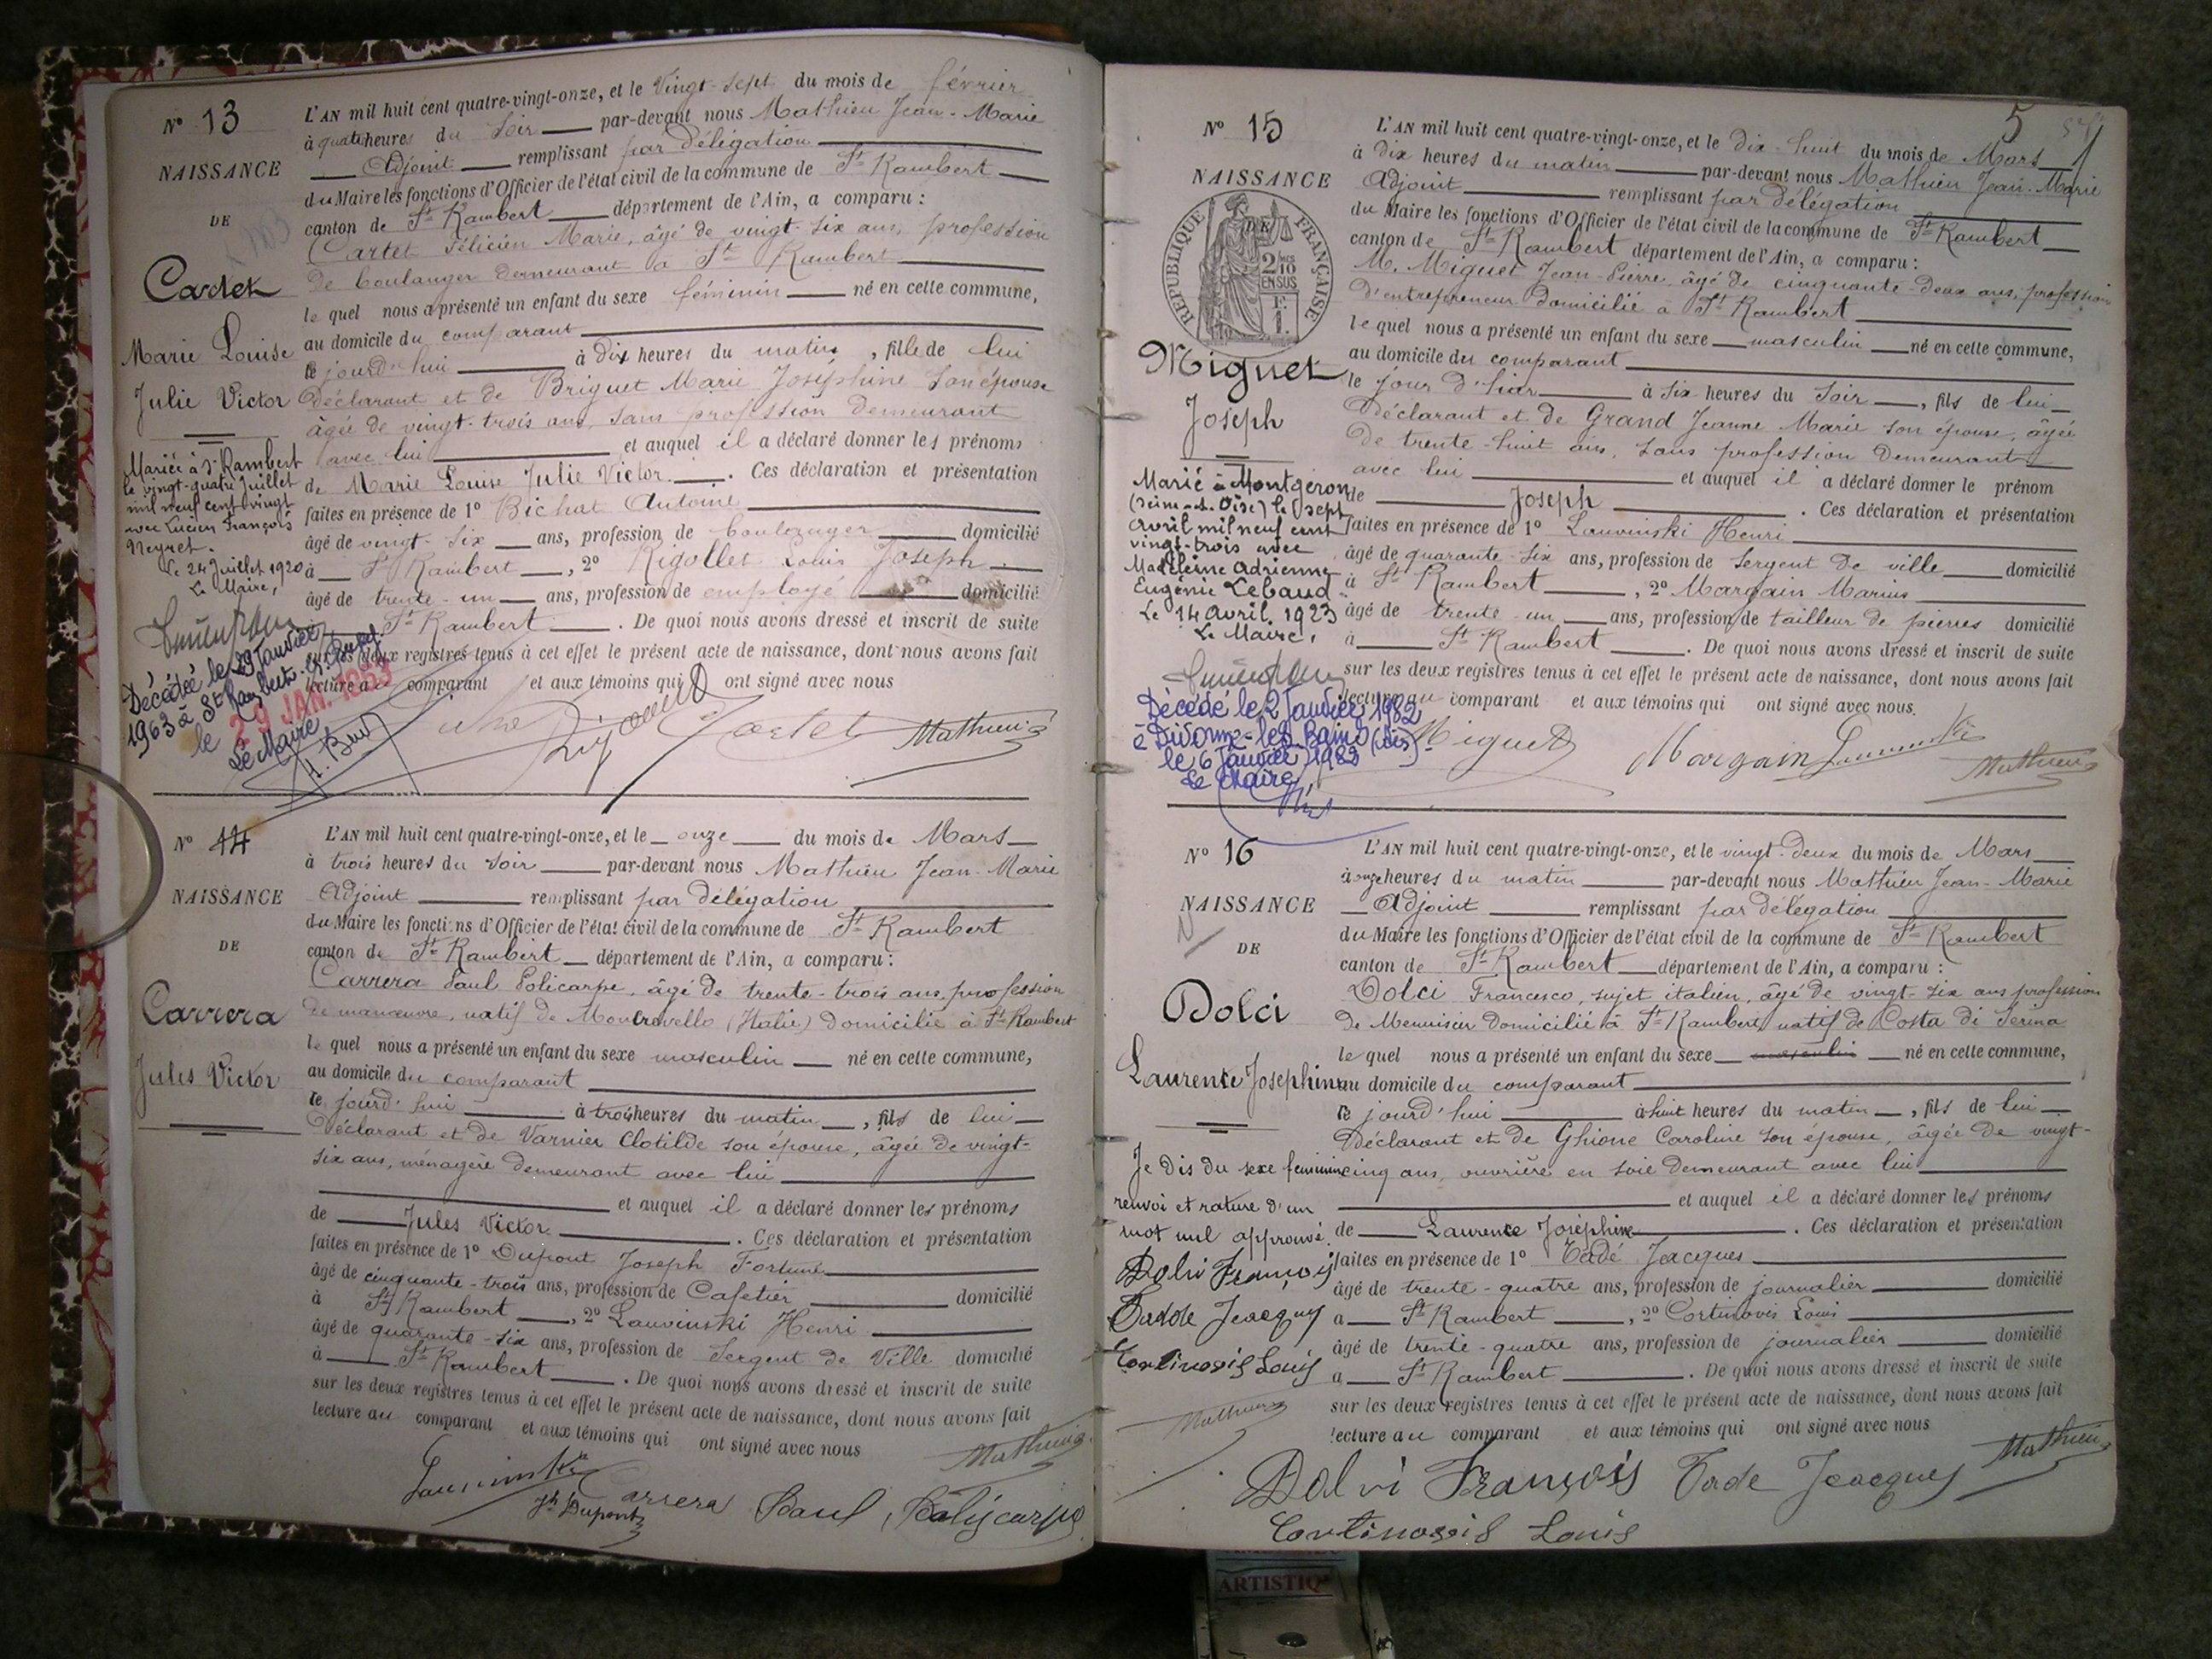 N° 13
NAISSANCE
DE
Cartet
Marie Louise
Julie Victor
Mariée à St Rambert
le vingt-quatre Juillet
mil neuf cent vingt
avec Lucien François
Neyret.
Le 24 Juillet 1920
Le Maire,
Décédée le 29 Janvier
1963 à St Rambert
le 29 JAN. 1963
Le Maire
L'AN mil huit cent quatre-vingt-onze, et le Vingt-sept du mois de février
à quatre heures du soir par-devant nous Mathieu Jean-Marie
Adjoint remplissant par délégation
du Maire les fonctions d'Officier de l'état civil de la commune de St Rambert
canton de St Rambert département de l'Ain, a comparu :
Cartet Félicien Marie, âgé de vingt-six ans, profession
de boulanger demeurant à St Rambert
le quel nous a présenté un enfant du sexe féminin né en cette commune,
au domicile du comparant
ce jourd'hui à dix heures du matin, fille de lui
déclarant et de Briguet Marie Joséphine son épouse
âgée de vingt-trois ans, sans profession demeurant
avec lui et auquel il a déclaré donner les prénoms
de Marie Louise Julie Victor. Ces déclaration et présentation
faites en présence de 1° Bichat Antoine
âgé de vingt-six ans, profession de boulanger domicilié
à St Rambert, 2° Rigollet Louis Joseph
âgé de trente-un ans, profession de employé domicilié
St Rambert. De quoi nous avons dressé et inscrit de suite
deux registres tenus à cet effet le présent acte de naissance, dont nous avons fait
lecture au comparant et aux témoins qui ont signé avec nous
Cartet Mathieu
N° 14
NAISSANCE
DE
Carrera
Jules Victor
L'AN mil huit cent quatre-vingt-onze, et le onze du mois de Mars
à trois heures du soir par-devant nous Mathieu Jean-Marie
Adjoint remplissant par délégation
du Maire les fonctions d'Officier de l'état civil de la commune de St Rambert
canton de St Rambert département de l'Ain, a comparu :
Carrera Paul Policarpe, âgé de trente-trois ans, profession
de manœuvre, natif de Moncrovello (Italie) domicilié à St Rambert
le quel nous a présenté un enfant du sexe masculin né en cette commune,
au domicile du comparant
ce jourd'hui à trois heures du matin, fils de lui
déclarant et de Varnier Clotilde son épouse, âgée de vingt-
six ans, ménagère demeurant avec lui
et auquel il a déclaré donner les prénoms
de Jules Victor. Ces déclaration et présentation
faites en présence de 1° Dupont Joseph Fortuné
âgé de cinquante-trois ans, profession de Cafetier domicilié
à St Rambert, 2° Lauvinski Henri
âgé de quarante-six ans, profession de Sergent de Ville domicilié
à St Rambert. De quoi nous avons dressé et inscrit de suite
sur les deux registres tenus à cet effet le présent acte de naissance, dont nous avons fait
lecture au comparant et aux témoins qui ont signé avec nous
Mathieu
Lauvinski Jh Dupont Carrera Paul Policarpo
5
N° 15
NAISSANCE
DE
REPUBLIQUE FRANÇAISE
2/10 EN SUS
Miguet
Joseph
Marié à Montgeron
(Seine-et-Oise) le sept
avril mil neuf cent
vingt-trois avec
Madeleine Adrienne
Eugénie Lebaud
Le 14 avril 1923
Le Maire,
Décédé le 2 Janvier 1982
à Divonne-les-Bains (Ain)
le 6 Janvier 1982
Le Maire
L'AN mil huit cent quatre-vingt-onze, et le dix-huit du mois de Mars
à dix heures du matin par-devant nous Mathieu Jean-Marie
Adjoint remplissant par délégation
du Maire les fonctions d'Officier de l'état civil de la commune de St Rambert
canton de St Rambert département de l'Ain, a comparu :
M. Miguet Jean-Pierre, âgé de cinquante-deux ans, profession
d'entrepreneur domicilié à St Rambert
le quel nous a présenté un enfant du sexe masculin né en cette commune,
au domicile du comparant
le jour d'hier à six heures du soir, fils de lui
déclarant et de Grand Jeanne Marie son épouse, âgée
de trente-huit ans, sans profession demeurant
avec lui et auquel il a déclaré donner le prénom
de Joseph. Ces déclaration et présentation
faites en présence de 1° Lauvinski Henri
âgé de quarante-six ans, profession de Sergent de ville domicilié
à St Rambert, 2° Margain Marius
âgé de trente-un ans, profession de tailleur de pierres domicilié
à St Rambert. De quoi nous avons dressé et inscrit de suite
sur les deux registres tenus à cet effet le présent acte de naissance, dont nous avons fait
lecture au comparant et aux témoins qui ont signé avec nous.
Miguet Margain Lauvinski Mathieu
N° 16
NAISSANCE
DE
Dolci
Laurence Josephine
Je dis du sexe féminin
renvoi et rature d'un
mot nul approuvé.
Dolci François
Tadde Jeacques
Cortinovis Louis
Mathieu
L'AN mil huit cent quatre-vingt-onze, et le vingt-deux du mois de Mars
à onze heures du matin par-devant nous Mathieu Jean-Marie
Adjoint remplissant par délégation
du Maire les fonctions d'Officier de l'état civil de la commune de St Rambert
canton de St Rambert département de l'Ain, a comparu :
Dolci Francesco, sujet italien, âgé de vingt-six ans profession
de Menuisier domicilié à St Rambert, natif de Costa di Serina
le quel nous a présenté un enfant du sexe masculin né en cette commune,
au domicile du comparant
ce jourd'hui à huit heures du matin, fils de lui
déclarant et de Ghione Caroline son épouse, âgée de vingt-
cinq ans, ouvrière en soie demeurant avec lui
et auquel il a déclaré donner les prénoms
de Laurence Joséphine. Ces déclaration et présentation
faites en présence de 1° Tadé Jacques
âgé de trente-quatre ans, profession de journalier domicilié
à St Rambert, 2° Cortinovis Louis
âgé de trente-quatre ans, profession de journalier domicilié
à St Rambert. De quoi nous avons dressé et inscrit de suite
sur les deux registres tenus à cet effet le présent acte de naissance, dont nous avons fait
lecture au comparant et aux témoins qui ont signé avec nous
Dolci François Tade Jeacques Mathieu
Cortinovis Louis
ARTISTIQ